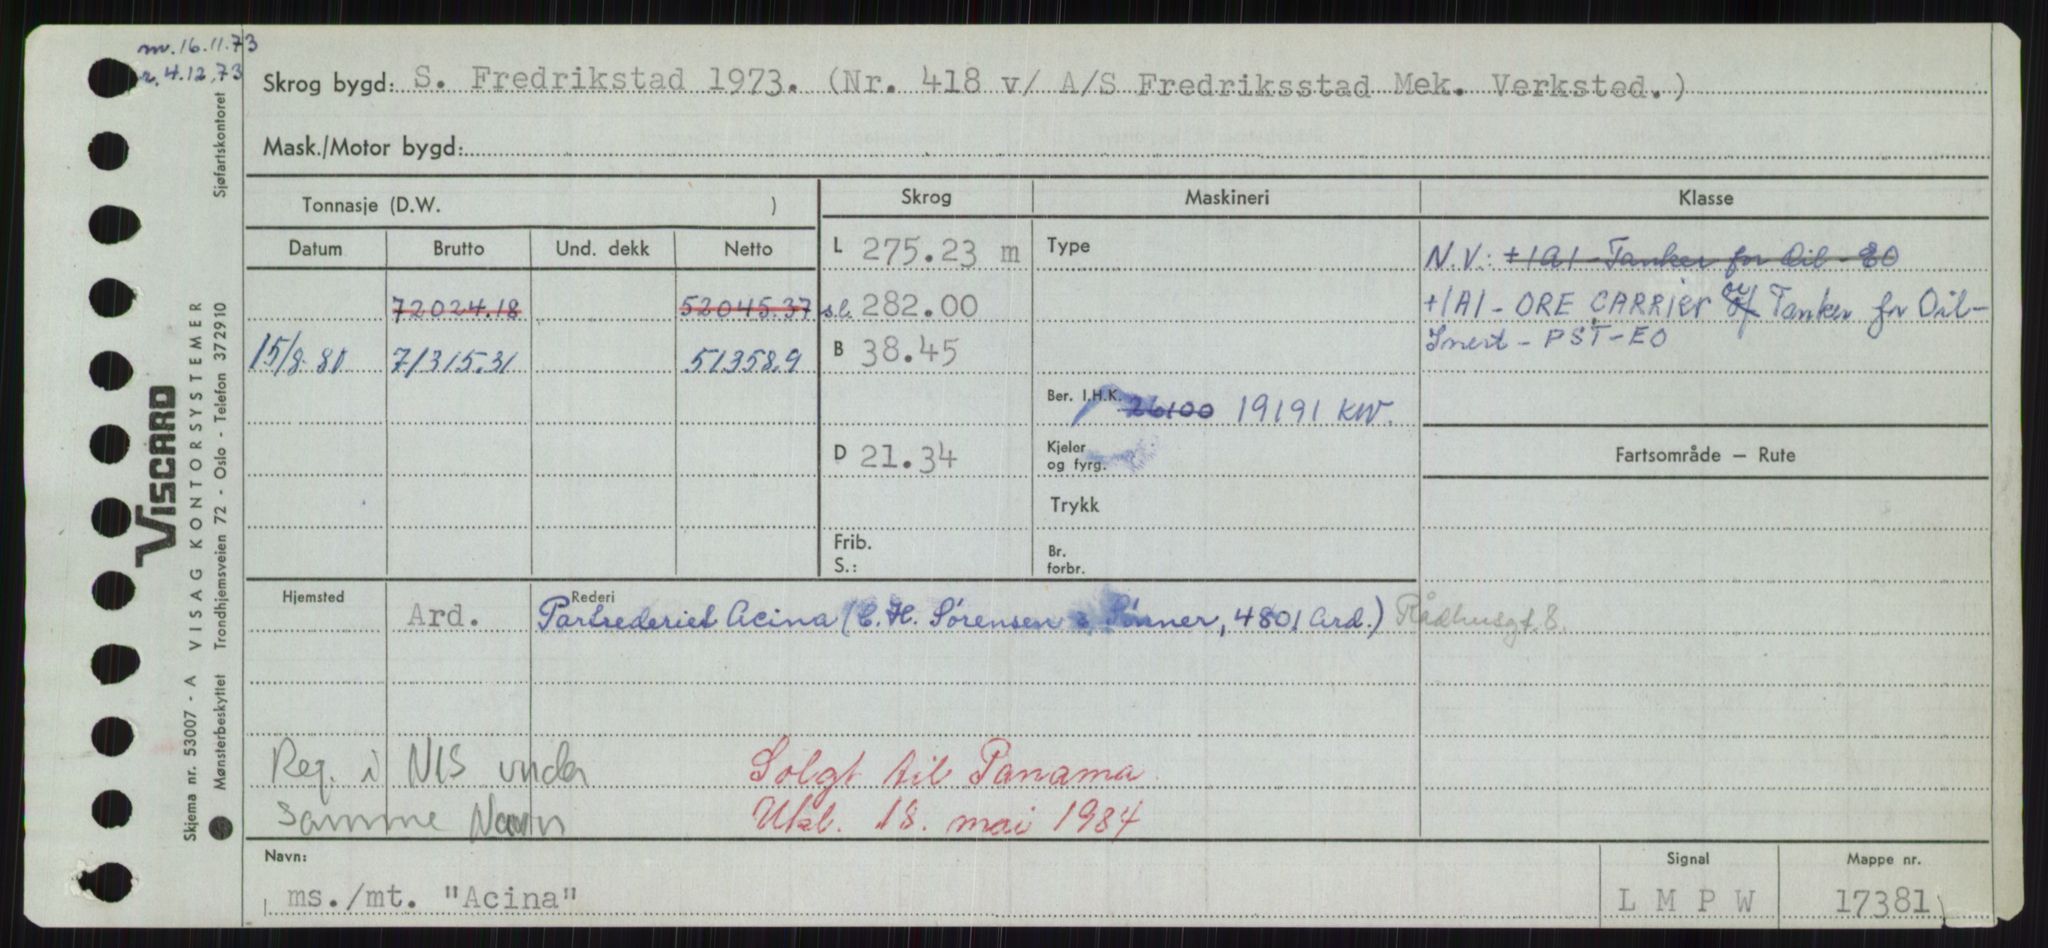 nv. 16.11.73
r. 4.12.73
Sjøfartskontoret
Skrog bygd: S. Fredrikstad 1973. (Nr. 418 v/ A/S Fredriksstad Mek. Verksted.)
Mask./Motor bygd:
Tonnasje (D.W. )
Skrog
Maskineri
Klasse
Datum
Brutto
Und. dekk
Netto
L 275.23 m
Type
N.V.: +1A1 - Tanker for Oil - EO
72024.18
52045.37
s.l. 282.00
+1A1 - ORE CARRIER or Tanker for Oil -
15/8-80
71315.31
51358.9
B 38.45
Inert - PST - EO
Ber. I.H.K. 26100 19191 KW.
D 21.34
Kjeler
og fyrg.
Fartsområde – Rute
Trykk
Frib.
S.:
Br.
forbr.
Hjemsted
Ard.
Rederi
Partrederiet Acina (C.H. Sørensen & Sønner, 4801 Ard.) Rådhusgt. 8.
Reg. i NIS under
Solgt til Panama
samme Navn
Utkl. 18. mai 1984
Navn:
Signal
Mappe nr.
ms./mt. "Acina"
L M P W
17381
VISCARD
Skjema nr. 53007 - A VISAG KONTORSYSTEMER
Mønsterbeskyttet Trondhjemsveien 72 - Oslo - Telefon 372910